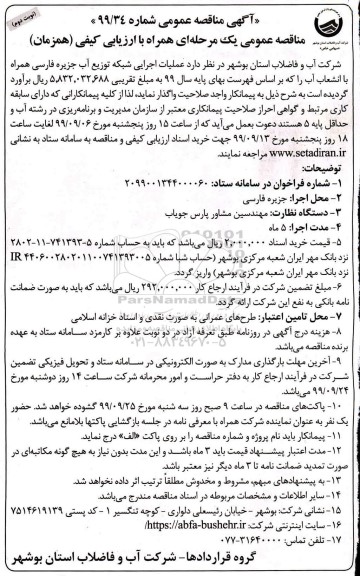 (نوبت دوم)
«آگهی مناقصه عمومی شماره ۹۹/۳۴»
مناقصه عمومی یک مرحله‌ای همراه با ارزیابی کیفی (همزمان)
شرکت آب و فاضلاب استان بوشهر در نظر دارد عملیات اجرایی شبکه توزیع آب جزیره فارسی همراه
با انشعاب آب را که بر اساس فهرست بهای پایه سال ۹۹ به مبلغ تقریبی ۵,۸۳۲,۰۳۲,۶۸۸ ریال برآورد
گردیده است به شرح ذیل به پیمانکار واجد صلاحیت واگذار نماید، لذا از کلیه پیمانکارانی که دارای سابقه
کاری مرتبط و گواهی احراز صلاحیت پیمانکاری معتبر از سازمان مدیریت و برنامه‌ریزی در رشته آب و
حداقل پایه ۵ هستند دعوت بعمل می‌آید که از ساعت ۱۵ روز پنجشنبه مورخ ۹۹/۰۹/۰۶ لغایت ساعت
۱۸ روز پنجشنبه مورخ ۹۹/۰۹/۱۳ جهت خرید اسناد ارزیابی کیفی و مناقصه به سامانه ستاد به نشانی
www.setadiran.ir مراجعه نمایند.
توضیحات:
۱- شماره فراخوان در سامانه ستاد: ۲۰۹۹۰۰۱۳۴۴۰۰۰۰۶۰
۲- محل اجرا: جزیره فارسی
۳- دستگاه نظارت: مهندسین مشاور پارس جویاب
۴- مدت اجرا: ۵ ماه
۵- قیمت خرید اسناد ۲,۰۰۰,۰۰۰ ریال می‌باشد که باید به حساب شماره ۵-۷۴۱۳۹۳-۱۱-۲۸۰۲
نزد بانک مهر ایران شعبه مرکزی بوشهر (حساب شبا شماره IR ۴۴۰۶۰۰۲۸۰۲۰۱۱۰۰۷۴۱۳۹۳۰۰۵
نزد بانک مهر ایران شعبه مرکزی بوشهر) واریز گردد.
۶- مبلغ تضمین شرکت در فرآیند ارجاع کار ۲۹۲,۰۰۰,۰۰۰ ریال می‌باشد که باید به صورت ضمانت
نامه بانکی به نفع این شرکت ارائه گردد.
۷- محل تامین اعتبار: طرح‌های عمرانی به صورت نقدی و اسناد خزانه اسلامی
۸- هزینه درج آگهی در روزنامه طبق تعرفه آزاد در دو نوبت علاوه بر کارمزد سامانه ستاد به عهده
برنده مناقصه می‌باشد.
۹- آخرین مهلت بارگذاری مدارک به صورت الکترونیکی در سامانه ستاد و تحویل فیزیکی تضمین
شرکت در فرآیند ارجاع کار به دفتر حراست و امور محرمانه شرکت ساعت ۱۴ روز دوشنبه مورخ
۹۹/۰۹/۲۴ می‌باشد.
۱۰- پاکت‌های مناقصه در ساعت ۹ صبح روز سه شنبه مورخ ۹۹/۰۹/۲۵ گشوده خواهد شد. حضور
یک نفر به عنوان نماینده شرکت همراه با معرفی نامه در جلسه بازگشایی پاکتها بلامانع می‌باشد.
۱۱- پیمانکار باید نام پروژه و شماره مناقصه را بر روی پاکت «الف» درج نماید.
۱۲- مدت اعتبار پیشنهاد قیمت باید ۳ ماه باشد و این مدت بدون نیاز به هیچ گونه مکاتبه‌ای در
صورت تمدید ضمانت نامه تا ۳ ماه دیگر نیز معتبر باشد.
۱۳- به پیشنهادهای مبهم، مشروط و مخدوش مطلقاً ترتیب اثر داده نخواهد شد.
۱۴- سایر اطلاعات و مشخصات مربوطه در اسناد مناقصه مندرج می‌باشد.
۱۵- نشانی شرکت: بوشهر - خیابان رئیسعلی دلواری - کوچه تنگسیر ۱ - کد پستی ۷۵۱۴۶۱۹۱۳۹
۱۶- سایت اینترنتی شرکت: https://abfa-bushehr.ir/
۱۷- تلفن تماس: ۳۱۶۴۰۰۰۰-۰۷۷
گروه قراردادها- شرکت آب و فاضلاب استان بوشهر